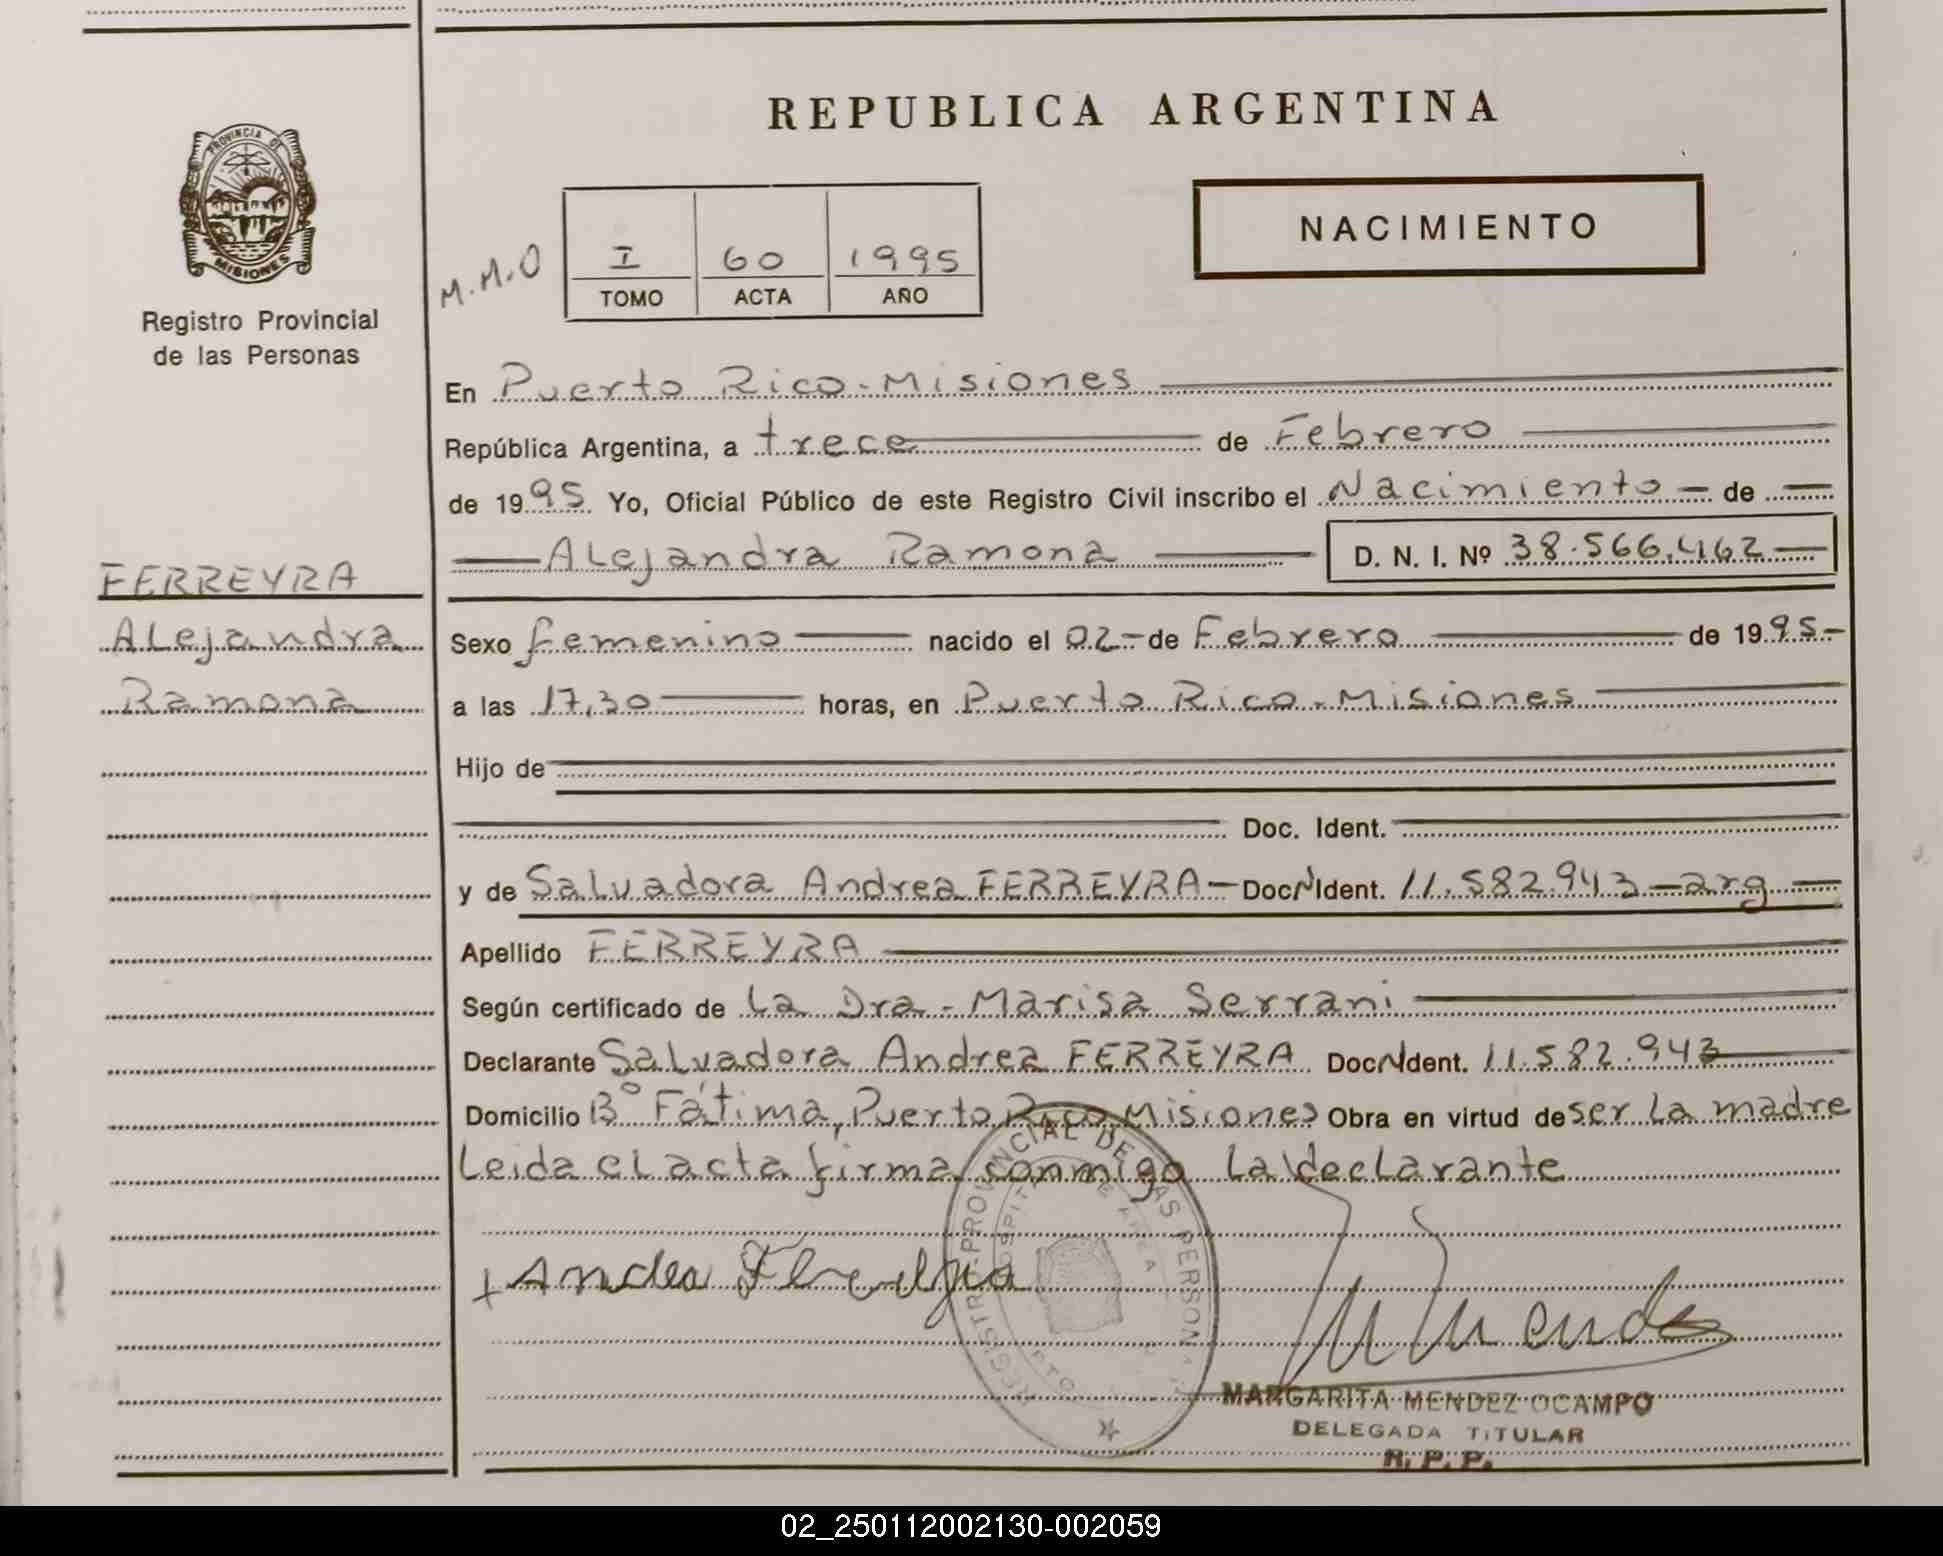 REPUBLICA ARGENTINA
PROVINCIA DE
MISIONES
Registro Provincial
de las Personas
M.M.O
I 60 1995
TOMO ACTA AÑO
NACIMIENTO
En Puerto Rico-Misiones
República Argentina, a trece de Febrero
de 1995 Yo, Oficial Público de este Registro Civil inscribo el Nacimiento - de
Alejandra Ramona D. N. I. Nº 38.566.462
FERREYRA
Alejandra
Ramona
Sexo femenino nacido el 02- de Febrero de 1995-
a las 17,30 horas, en Puerto Rico-Misiones
Hijo de
Doc. Ident.
y de Salvadora Andrea FERREYRA - Doc N Ident. 11.582.943 - arg
Apellido FERREYRA
Según certificado de La Dra- Marisa Serrani
Declarante Salvadora Andrea FERREYRA Doc N Ident. 11.582.943
Domicilio Bº Fátima, Puerto Rico Misiones Obra en virtud de ser La madre
Leida el acta firma conmigo La declarante
REGISTRO PROVINCIAL DE LAS PERSONAS
MARGARITA MENDEZ OCAMPO
DELEGADA TITULAR
R. P. P.
02_250112002130-002059